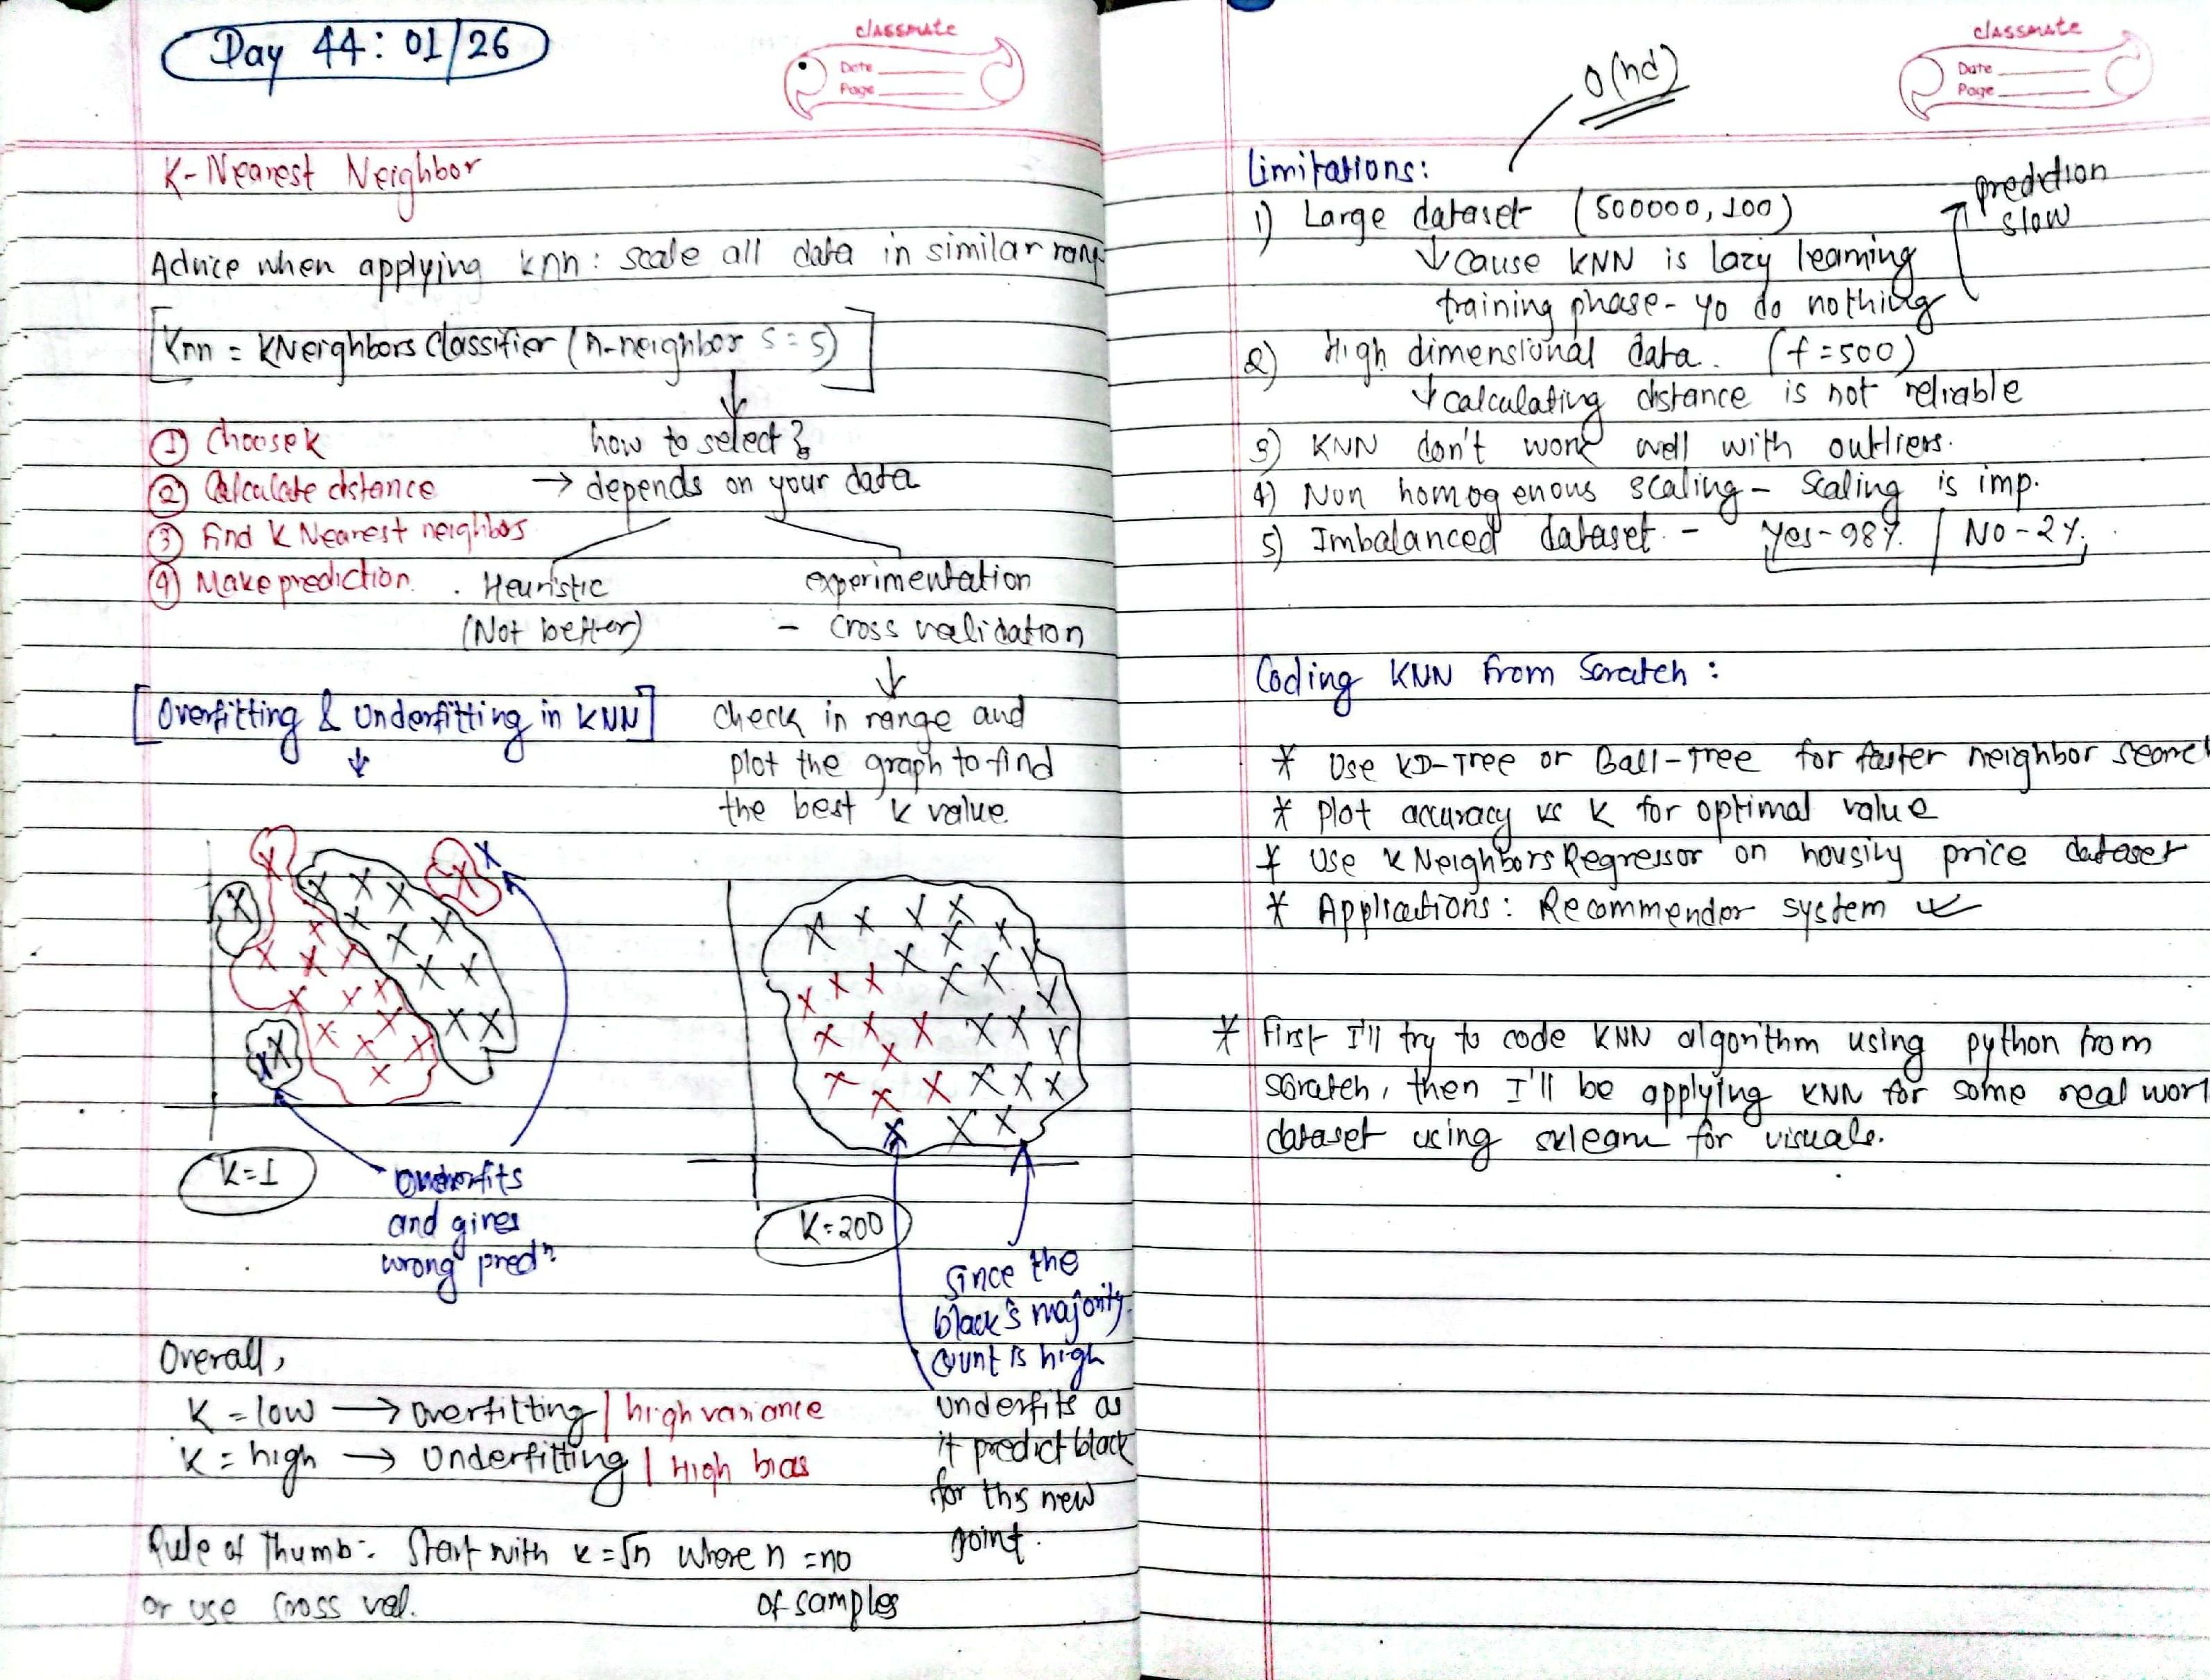 Day 44: 01/26
classmate
Date
Page
K-Nearest Neighbor
Advice when applying knn: scale all data in similar rang
Knn = KNeighbors Classifier (n-neighbor s = 5)
① Choose K
② Calculate distance
③ Find K Nearest neighbors
④ Make prediction.
how to select?
→ depends on your data
Heuristic
(Not better)
experimentation
- Cross validation
↓
check in range and
plot the graph to find
the best k value
[Overfitting & Underfitting in KNN]
K=1
and gives
wrong predⁿ
K=200
Since the
black's majority
count is high
underfits as
it predict black
for this new
point.
Overall,
K = low → overfitting | high variance
K = high → Underfitting | High bias
Rule of Thumb:- Start with k = √n where n = no
of samples
or use Cross val.
classmate
Date
Page
O(nd)
Limitations:
1) Large dataset (500000, 100)
↓ cause KNN is lazy learning
training phase - yo do nothing
prediction
slow
2) High dimensional data. (f = 500)
↓ calculating distance is not reliable
3) KNN don't work well with outliers.
4) Non homogenous scaling - Scaling is imp.
5) Imbalanced dataset - Yes-98% | No-2%
Coding KNN from Scratch :
* Use KD-Tree or Ball-Tree for faster neighbor search
* Plot accuracy vs K for optimal value
* Use KNeighborsRegressor on housing price dataset
* Applications: Recommender system
* First I'll try to code KNN algorithm using python from
scratch, then I'll be applying KNN for some real worl
dataset using sklearn for visuals.